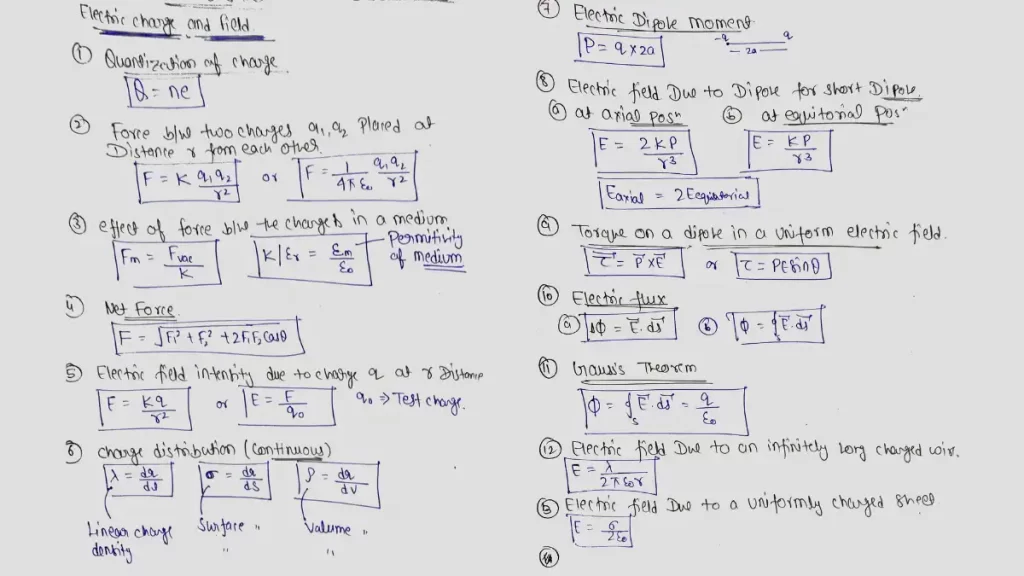 Electric charge and field.
① Quantization of charge
Q = ne
② Force b/w two charges q1, q2 Placed at
Distance r from each other.
F = K q1q2/r² or F = 1/4πε0 q1q2/r²
③ effect of force b/w the charges in a medium
Fm = Fvac/K K/εr = εm/ε0 — Permitivity
of medium
④ Net Force.
F = √F1² + F2² + 2F1F2 Cosθ
⑤ Electric field intensity due to charge q at r Distance
E = Kq/r² or E = F/q0 q0 ⇒ Test charge.
⑥ charge distribution (Continuous)
λ = dq/dl σ = dq/ds ρ = dq/dv
Linear charge density Surface " " Volume " "
⑦ Electric Dipole moment
P = q x 2a -q q
— 2a —
⑧ Electric field Due to Dipole for short Dipole.
ⓐ at axial posⁿ ⓑ at equitorial Posⁿ
E = 2KP/r³ E = KP/r³
Eaxial = 2Eequitorial
⑨ Torque on a dipole in a uniform electric field.
τ⃗ = P⃗ x E⃗ or τ = PE sinθ
⑩ Electric flux
ⓐ ΔΦ = E⃗. ds⃗ ⓑ Φ = ∮E⃗. ds⃗
⑪ Gauss's Theorem
Φ = ∮s E⃗. ds⃗ = q/ε0
⑫ Electric field Due to an infinitely long charged wire.
E = λ/2πε0r
Electric field Due to a uniformly charged sheet
E = σ/2ε0